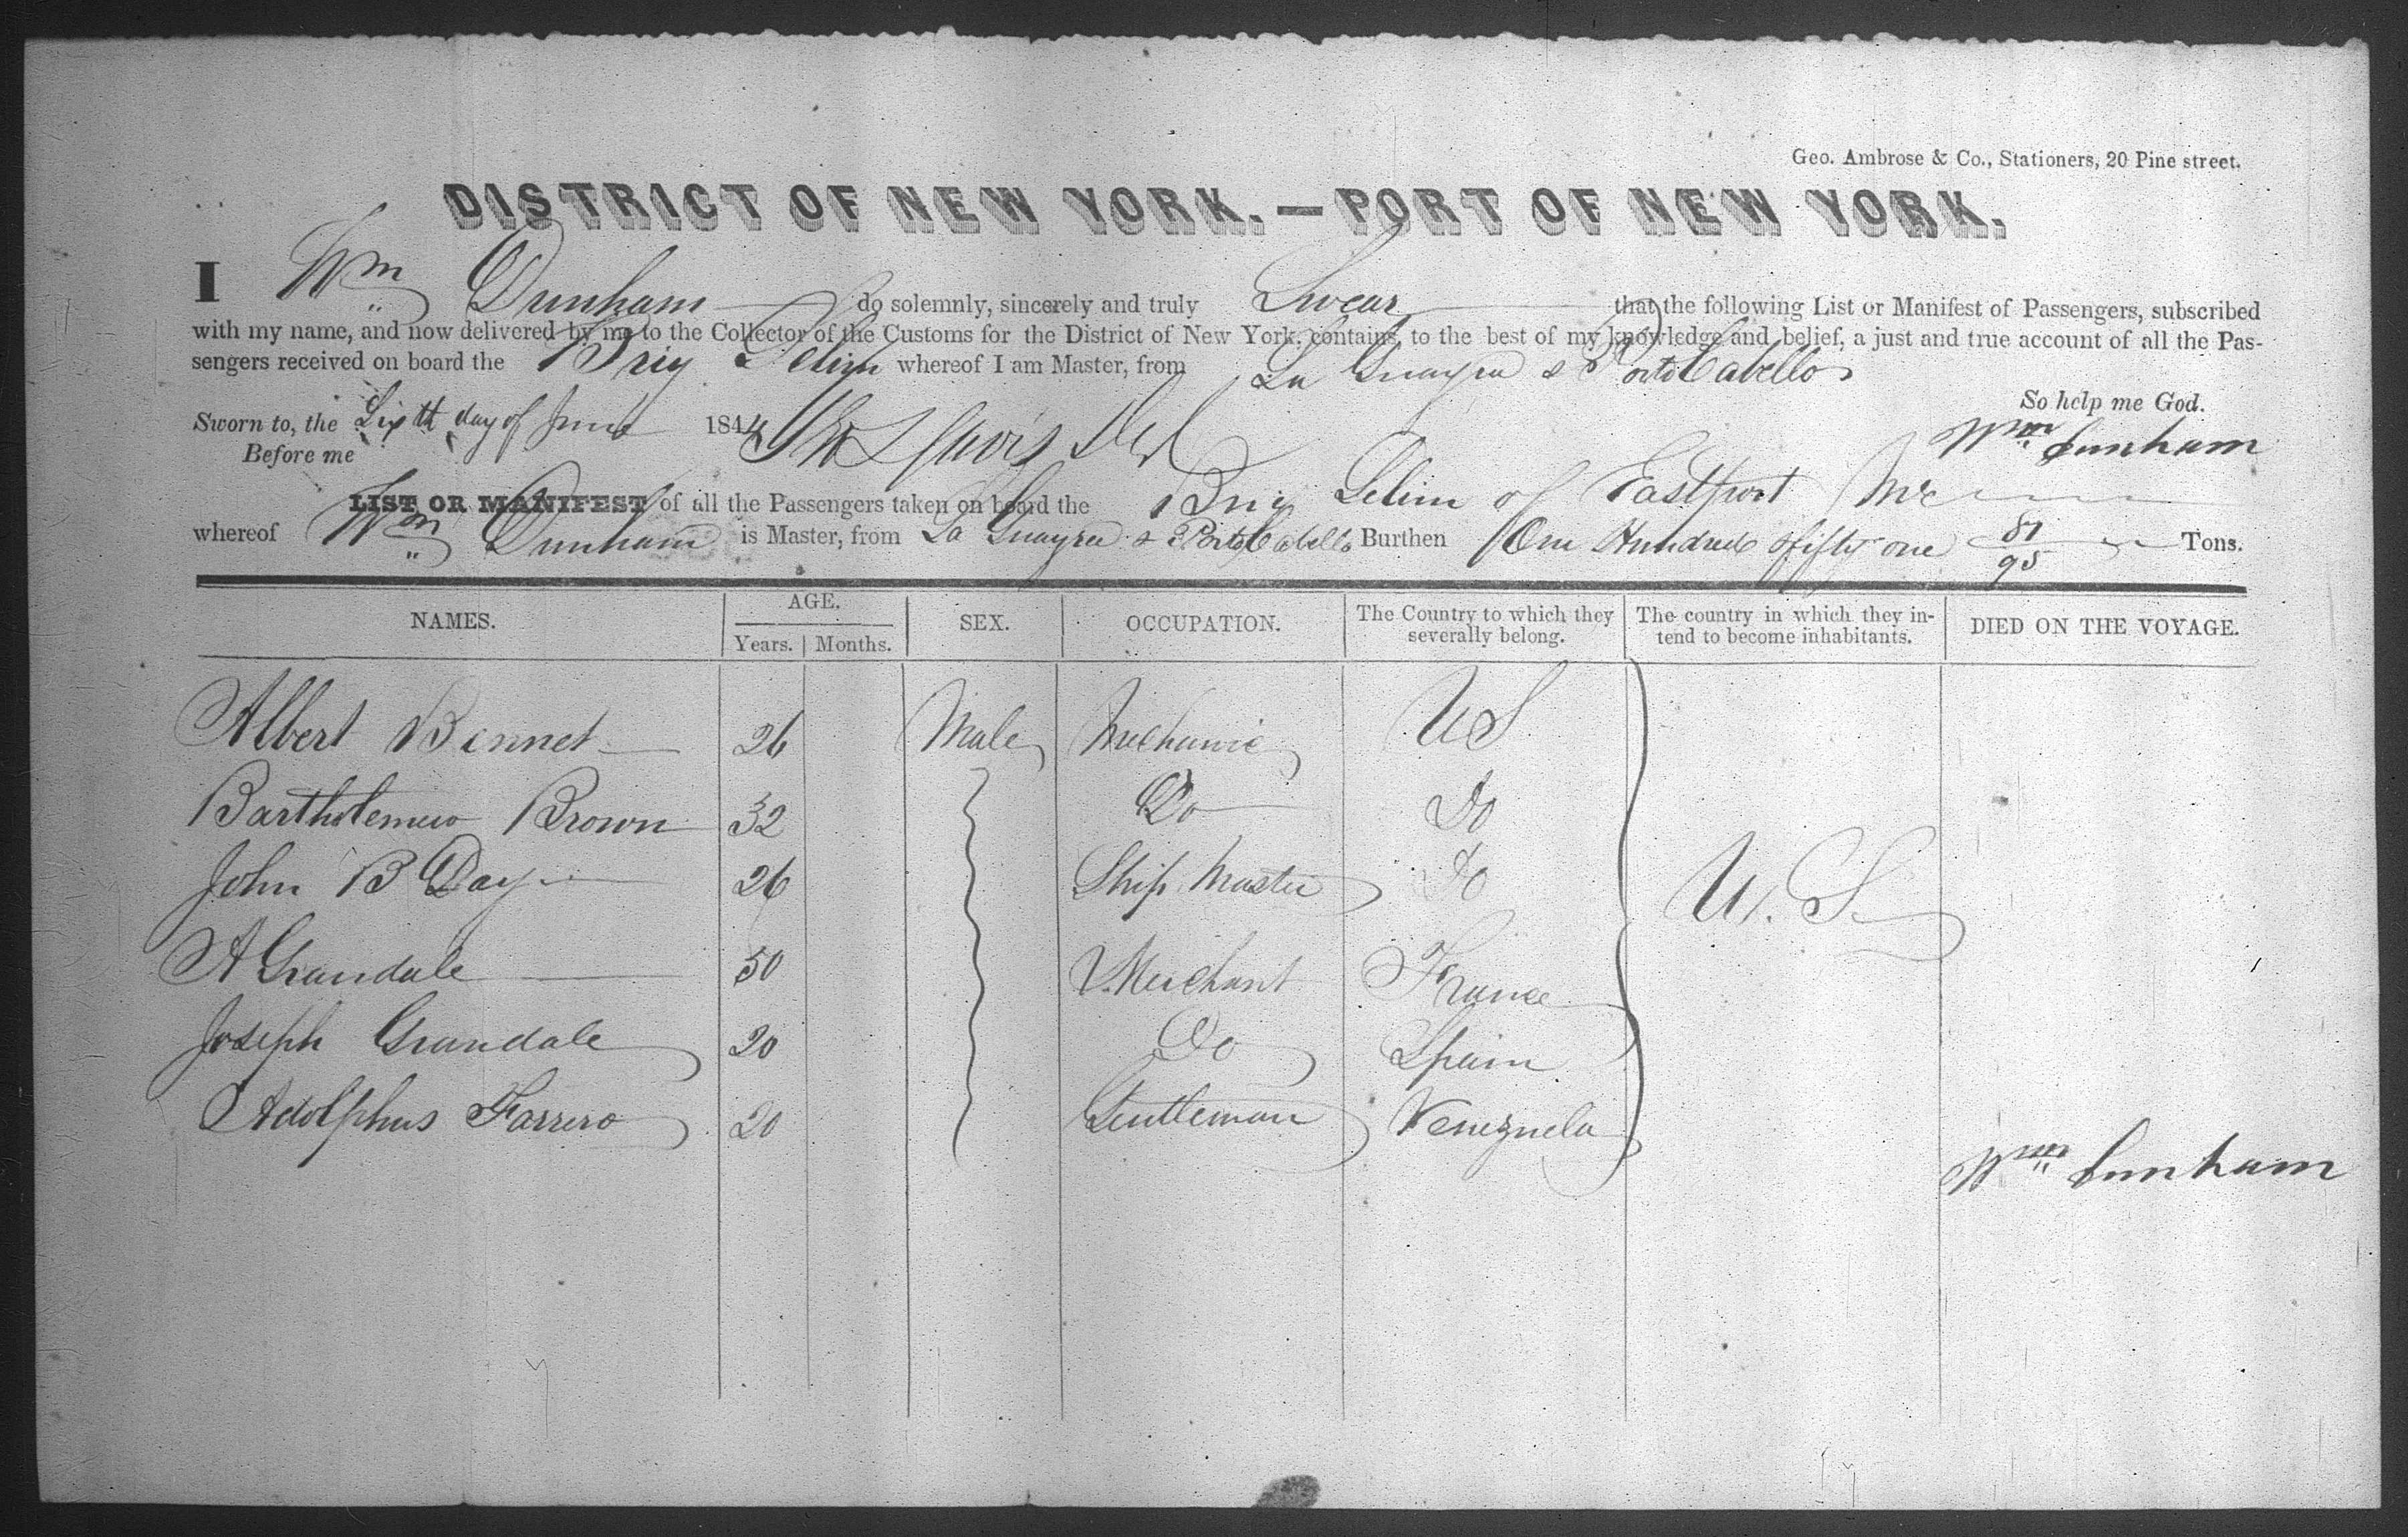 Geo. Ambrose & Co., Stationers, 20 Pine street.
DISTRICT OF NEW YORK.—PORT OF NEW YORK.
I Wm Dunham do solemnly, sincerely and truly Swear that the following List or Manifest of Passengers, subscribed
with my name, and now delivered by me to the Collector of the Customs for the District of New York, contains, to the best of my knowledge and belief, a just and true account of all the Pas-
sengers received on board the Brig Selim whereof I am Master, from La Guayra & Porto Cabello
So help me God.
Sworn to, the Sixth day of June 1844
Before me
Wm Dunham
LIST OR MANIFEST of all the Passengers taken on board the Brig Selim of Eastport Me
whereof Wm Dunham is Master, from La Guayra & Porto Cabello Burthen One Hundred & fifty one 81/95 Tons.
NAMES. AGE. SEX. OCCUPATION. The Country to which they severally belong. The country in which they in-tend to become inhabitants. DIED ON THE VOYAGE.
Years. Months.
Albert Bennet 26 Male Mechanic U S
Bartholemew Brown 32 Do Do
John B Day 26 Ship Master Do
U. S.
A Grandale 50 Merchant France
Joseph Grandale 20 Do Spain
Adolphus Farrero 20 Gentleman Venezuela
Wm Dunham